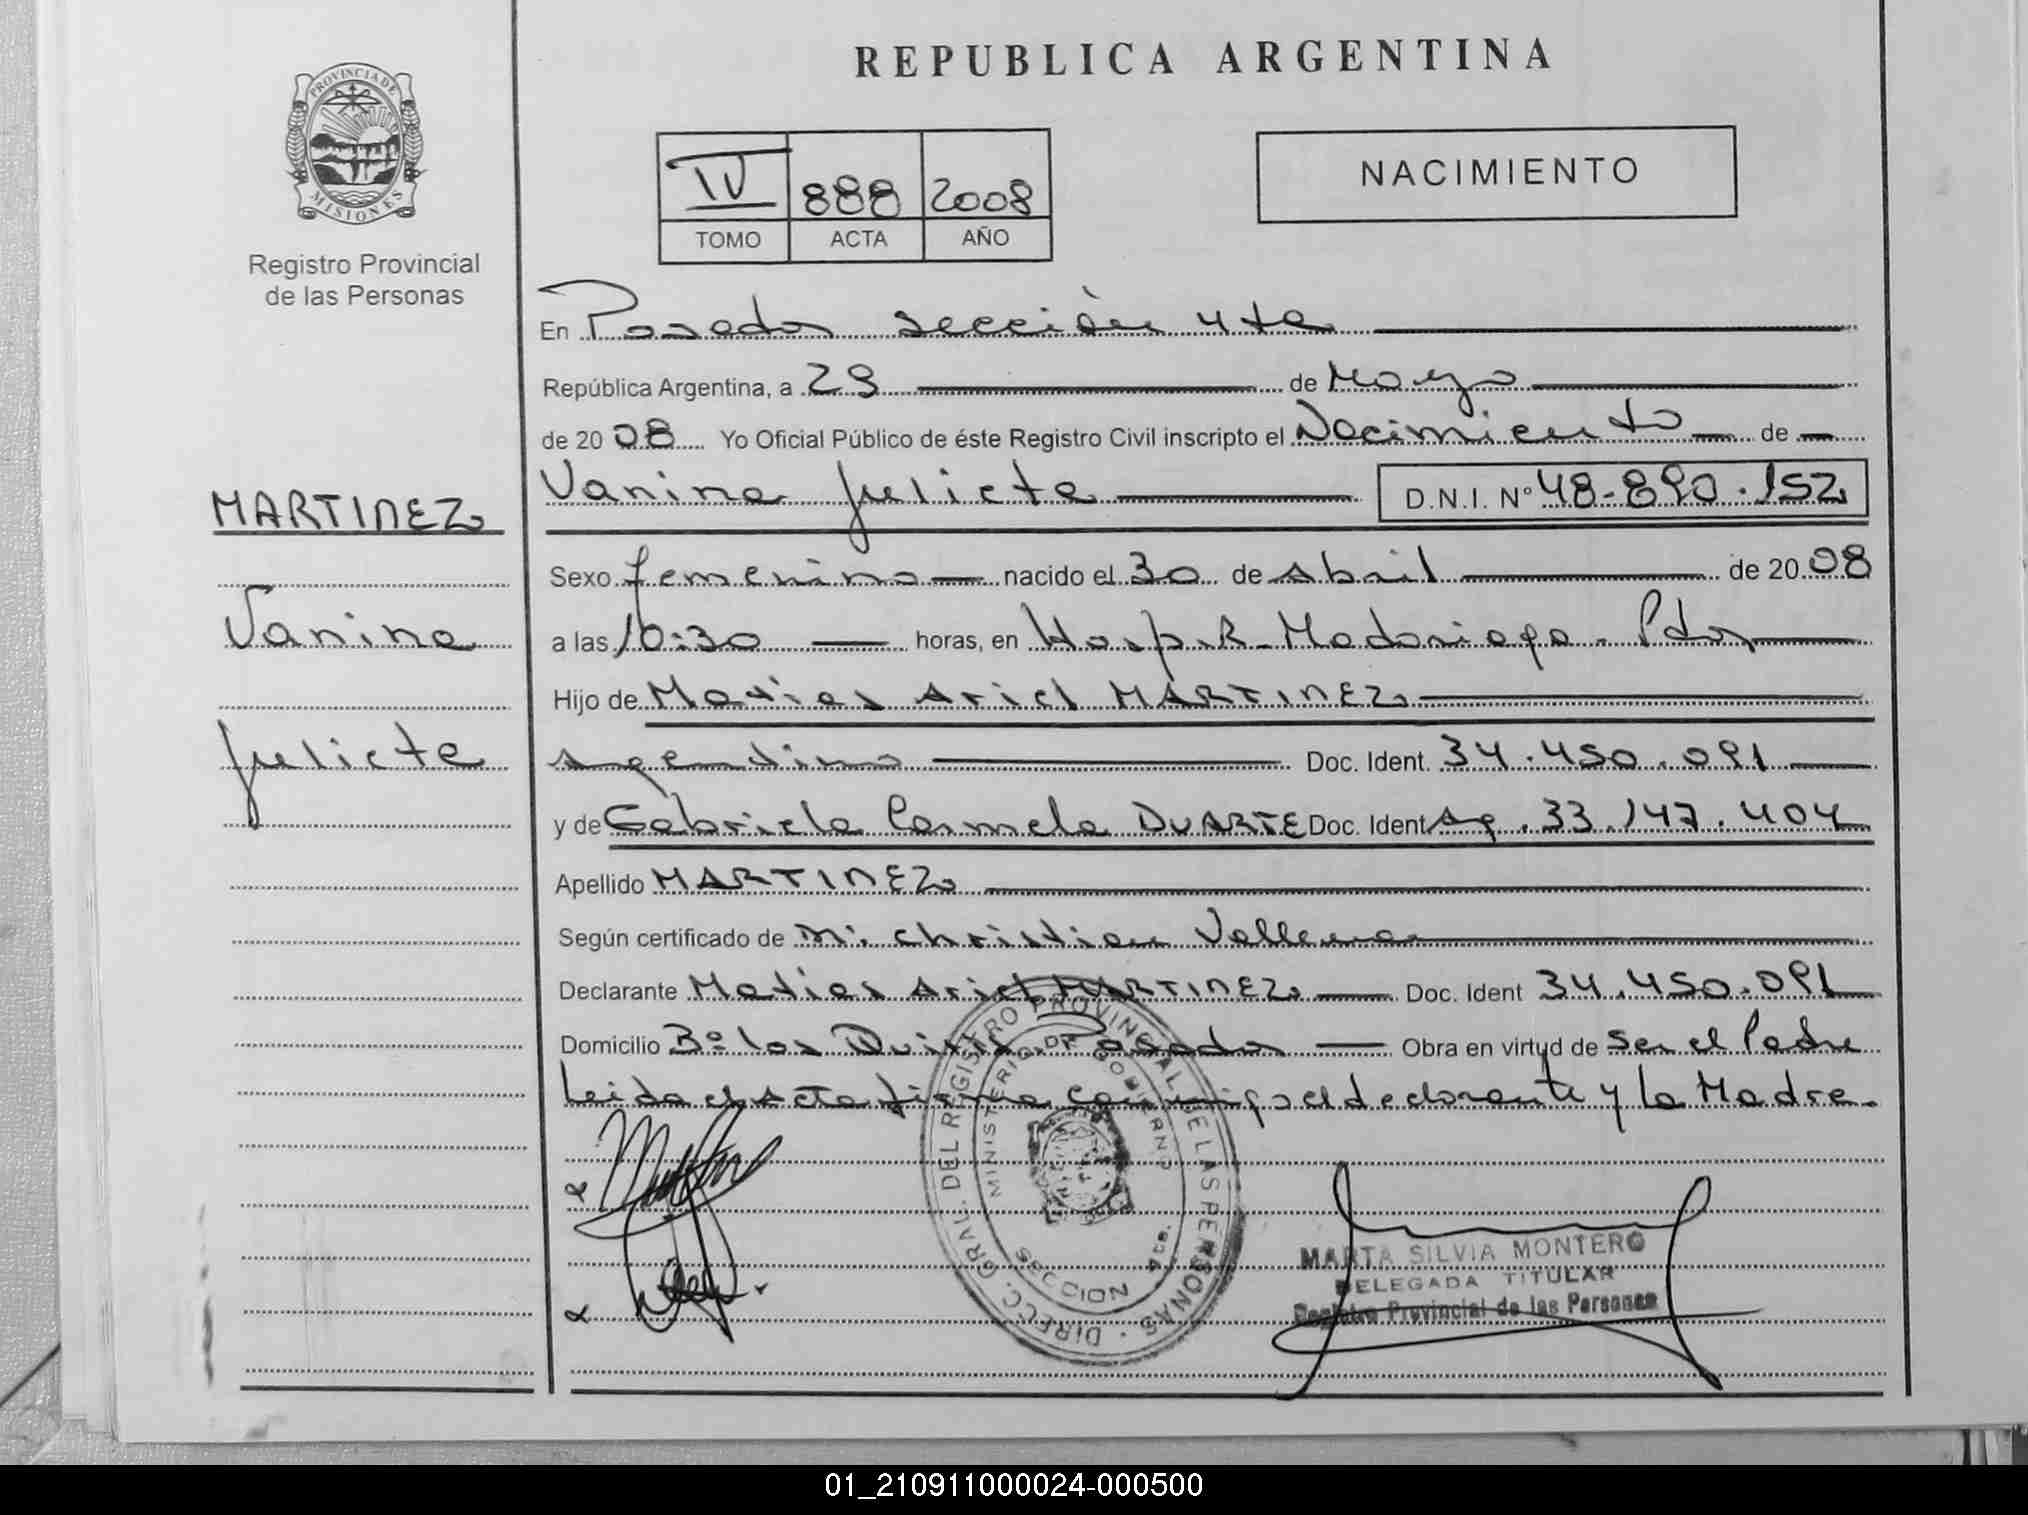 REPUBLICA ARGENTINA
PROVINCIA DE MISIONES
Registro Provincial
de las Personas
IV 888 2008
TOMO ACTA AÑO
NACIMIENTO
En Posadas sección 4ta
República Argentina, a 29 de Mayo
de 2008 Yo Oficial Público de éste Registro Civil inscripto el Nacimiento de
Vanina Julieta D.N.I. Nº 48-890.152
MARTINEZ
Vanina
Julieta
Sexo femenino nacido el 30 de Abril de 2008
a las 10:30 horas, en Hospit. Madariaga. Pdas
Hijo de Matias Ariel MARTINEZ
argentino Doc. Ident. 34.450.091
y de Gabriela Carmela DUARTE Doc. Ident Ag. 33.147.404
Apellido MARTINEZ
Según certificado de M. Christian
Declarante Matias Ariel MARTINEZ Doc. Ident 34.450.091
Domicilio Bº los Posadas Obra en virtud de Ser el Padre
Leida el Acta firma conmigo el declarante y la Madre.
DIRECC. GRAL. DEL REGISTRO PROVINCIAL DE LAS PERSONAS
MINISTERIO DE GOBIERNO
SECCION 4ta.
MARTA SILVIA MONTERO
DELEGADA TITULAR
Registro Provincial de las Personas
01_210911000024-000500